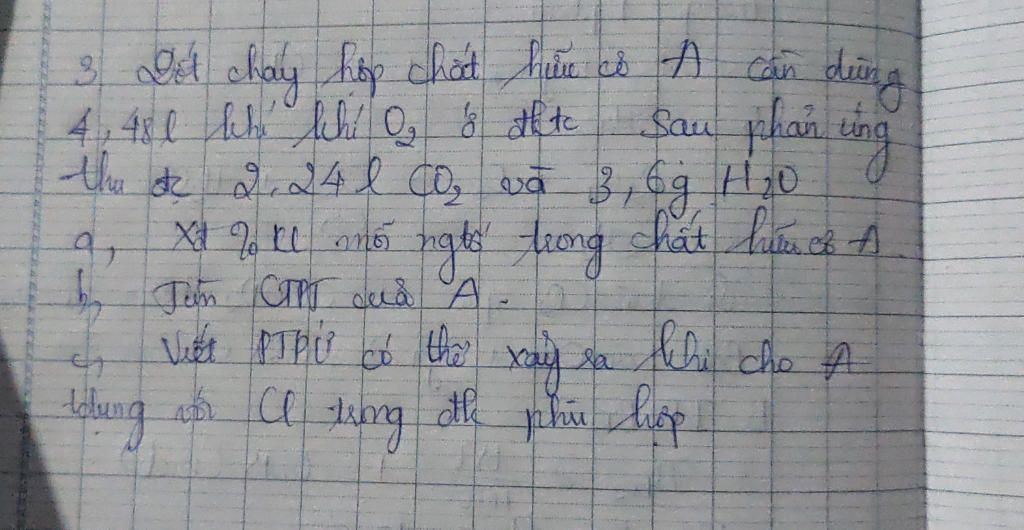 3, Đốt cháy hợp chất hữu cơ A cần dùng
4,48l khí khí O2 ở đktc Sau phản ứng
thu đc 2,24 l CO2 và 3,6g H2O
a, Xđ % KL mỗi ngtố trong chất hữu cơ A
b, Tìm CTPT của A.
c, Viết PTPƯ có thể xảy ra khi cho A
tdụng với Cl trong đk phù hợp